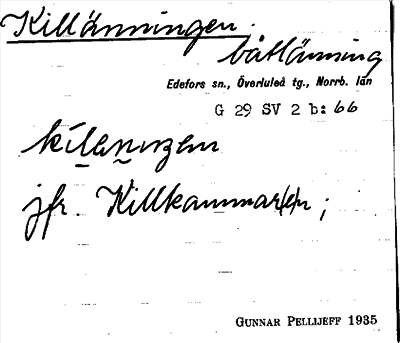 Killänningen.
båtlänning
Edefors sn., Överluleå tg., Norrb. län
G 29 SV 2 b: 66
jfr. Killkammar(e)n;
GUNNAR PELLIJEFF 1935